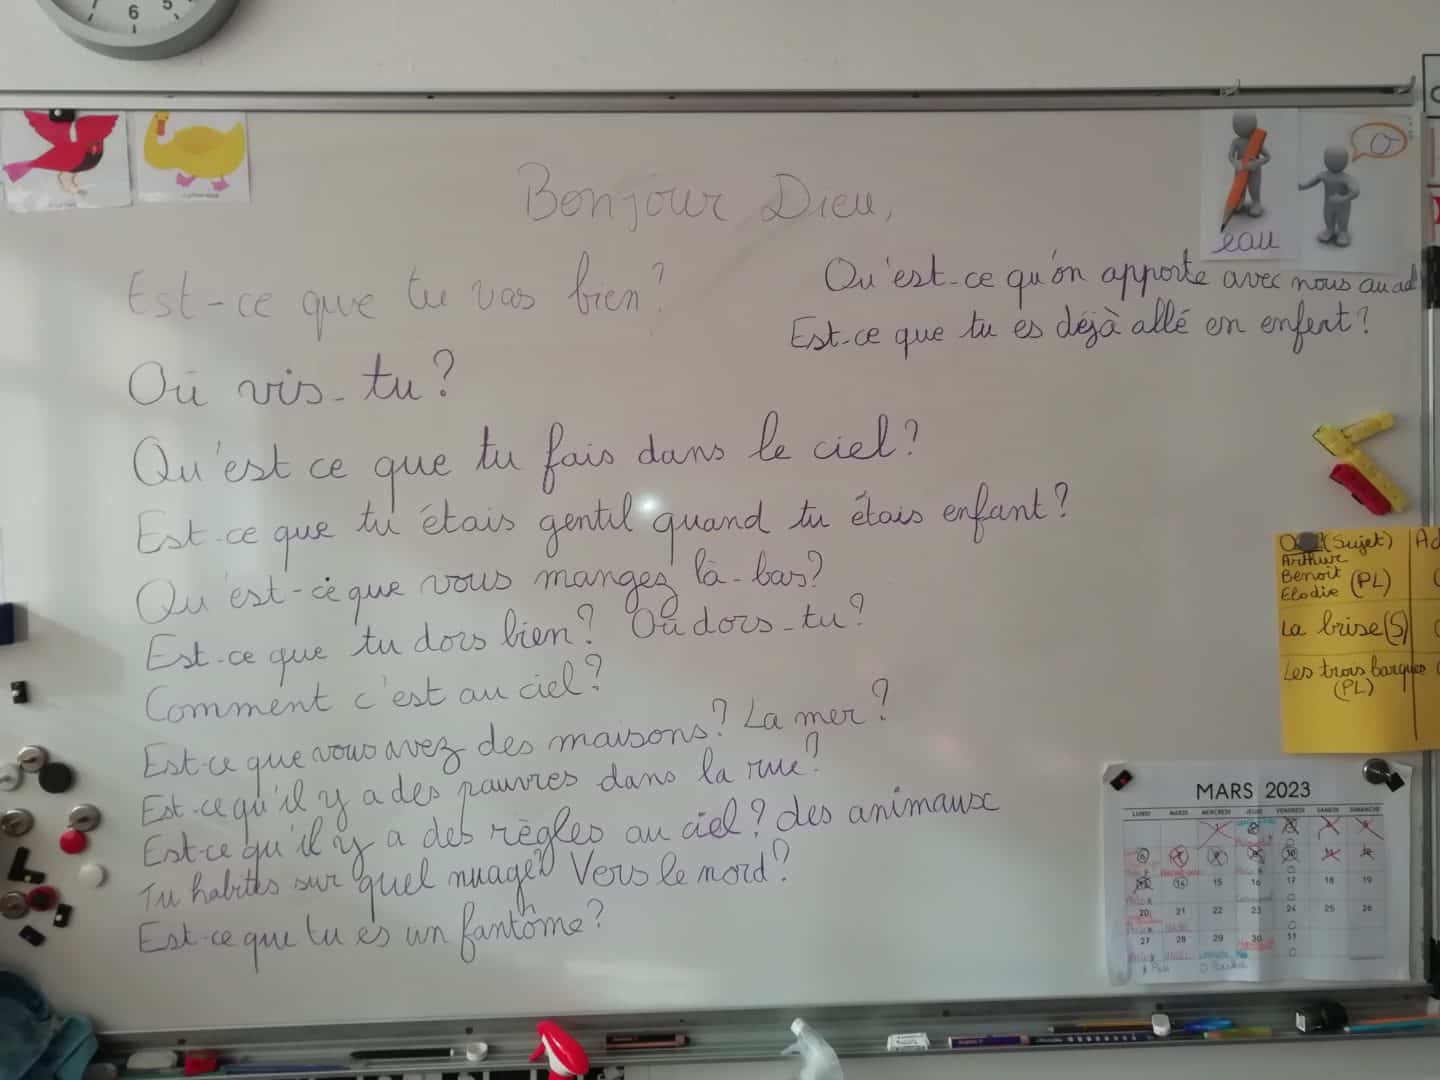 6 5
Bonjour Dieu,
eau
Est-ce que tu vas bien?
Qu'est-ce qu'on apporte avec nous au
Est-ce que tu es déjà allé en enfert?
Où vis-tu?
Qu'est ce que tu fais dans le ciel?
Est-ce que tu étais gentil quand tu étais enfant?
Qu'est-ce que vous mangez là-bas?
Est-ce que tu dors bien? Où dors-tu?
Comment c'est au ciel?
Est-ce que vous avez des maisons? La mer?
Est-ce qu'il y a des pauvres dans la rue?
Est-ce qu'il y a des règles au ciel? des animaux
Tu habites sur quel nuage? Vers le nord?
Est-ce que tu es un fantôme?
(Sujet)
Arthur
Benoit (PL)
Elodie
La brise (S)
Les trois barques
(PL)
MARS 2023
LUNDI MARDI MERCREDI JEUDI VENDREDI SAMEDI DIMANCHE
14 15 16 17 18 19
20 21 22 23 24 25 26
27 28 29 30 31